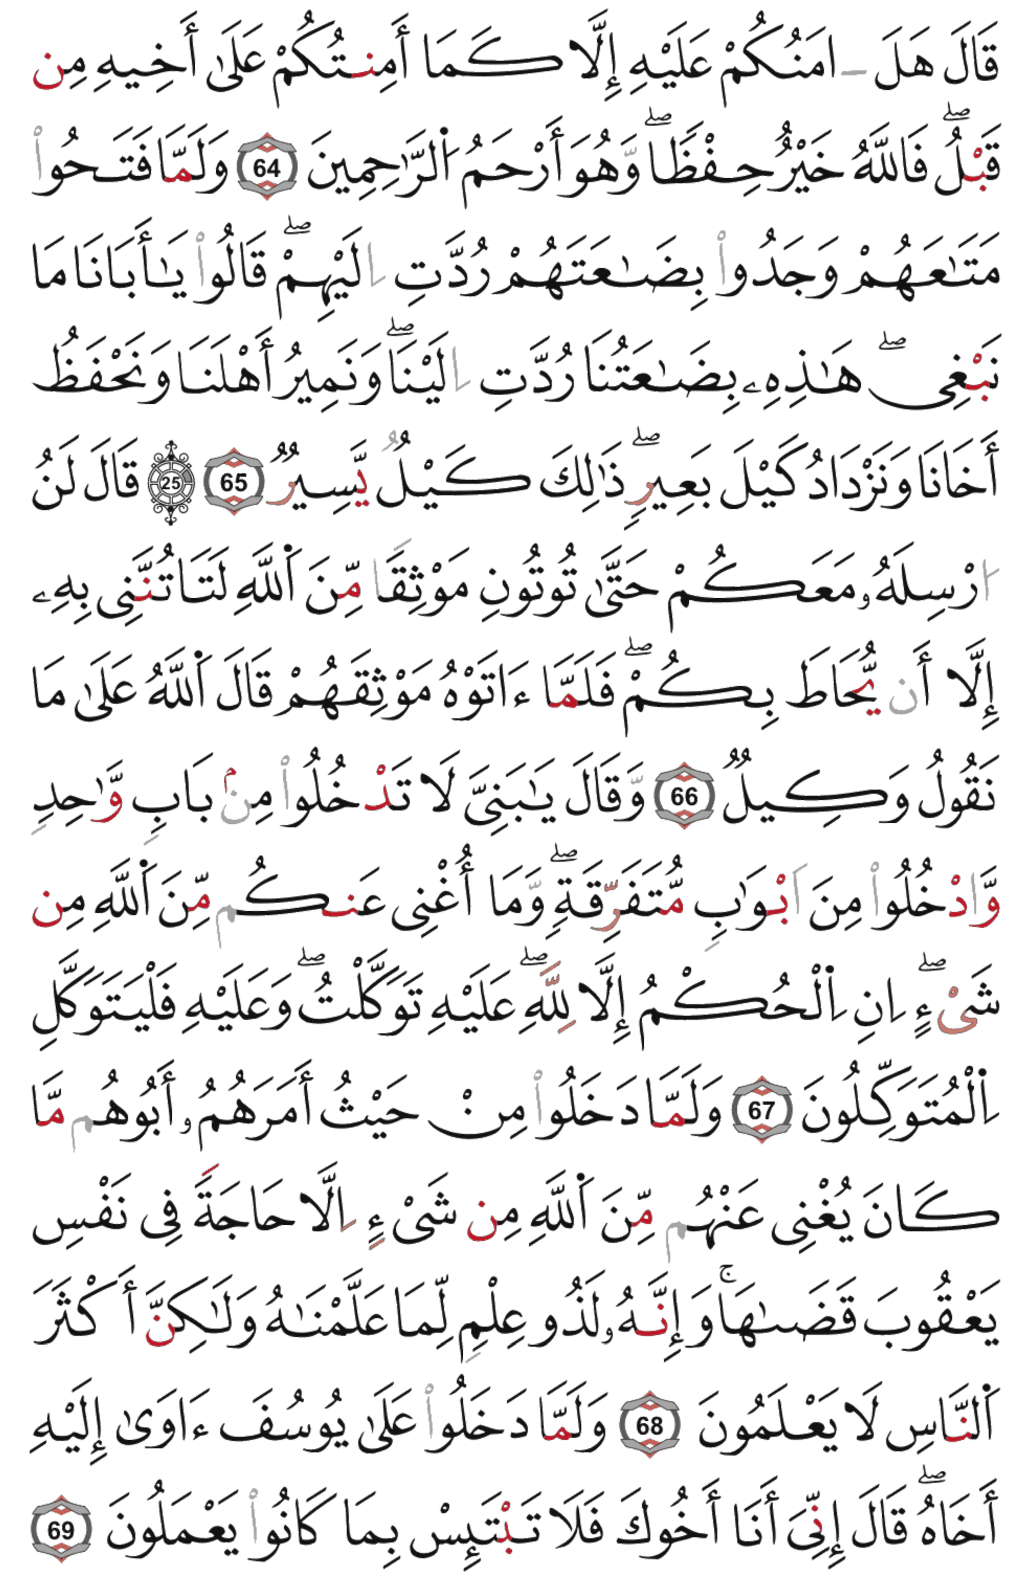 قَالَ هَلَ ـ امَنُكُمْ عَلَيْهِ إِلَّا كَمَا أَمِنتُكُمْ عَلَىٰ أَخِيهِ مِن
قَبْلُۖ فَاللَّهُ خَيْرٌ حِفْظًاۖ وَهُوَ أَرْحَمُ اُ۬لرَّٰحِمِينَ 64 وَلَمَّا فَتَحُواْ
مَتَٰعَهُمْ وَجَدُواْ بِضَٰعَتَهُمْ رُدَّتِ اِلَيْهِمْۖ قَالُواْ يَٰأَبَانَا مَا
نَبْغِيۖ هَٰذِهِۦ بِضَٰعَتُنَا رُدَّتِ اِلَيْنَاۖ وَنَمِيرُ أَهْلَنَا وَنَحْفَظُ
أَخَانَا وَنَزْدَادُ كَيْلَ بَعِيرٖۖ ذَٰلِكَ كَيْلٌ يَّسِيرٌ 65 25 قَالَ لَنُ
ارْسِلَهُۥ مَعَكُمْ حَتَّىٰ تُوتُونِ مَوْثِقًا مِّنَ اَ۬للَّهِ لَتَاتُنَّنِي بِهِۦ
إِلَّا أَن يُّحَاطَ بِكُمْۖ فَلَمَّا ءَاتَوْهُ مَوْثِقَهُمْ قَالَ اَ۬للَّهُ عَلَىٰ مَا
نَقُولُ وَكِيلٌ 66 وَّقَالَ يَٰبَنِيَّ لَا تَدْخُلُواْ مِنۢ بَابٍ وَّٰحِدٍ
وَّادْخُلُواْ مِنَ اَبْوَٰبٍ مُّتَفَرِّقَةٍۖ وَّمَا أُغْنِي عَنكُم مِّنَ اَ۬للَّهِ مِن
شَيْءٍۖ اِنِ اِ۬لْحُكْمُ إِلَّا لِلَّهِۖ عَلَيْهِ تَوَكَّلْتُۖ وَعَلَيْهِ فَلْيَتَوَكَّلِ
اِ۬لْمُتَوَكِّلُونَ 67 وَلَمَّا دَخَلُواْ مِنْ حَيْثُ أَمَرَهُمُۥ أَبُوهُم مَّا
كَانَ يُغْنِي عَنْهُم مِّنَ اَ۬للَّهِ مِن شَيْءٍ اِلَّا حَاجَةً فِي نَفْسِ
يَعْقُوبَ قَضَىٰهَاۚ وَإِنَّهُۥ لَذُو عِلْمٍ لِّمَا عَلَّمْنَٰهُ وَلَٰكِنَّ أَكْثَرَ
اَ۬لنَّاسِ لَا يَعْلَمُونَ 68 وَلَمَّا دَخَلُواْ عَلَىٰ يُوسُفَ ءَاوَىٰ إِلَيْهِ
أَخَاهُۖ قَالَ إِنِّيَ أَنَا أَخُوكَ فَلَا تَبْتَئِسْ بِمَا كَانُواْ يَعْمَلُونَ 69